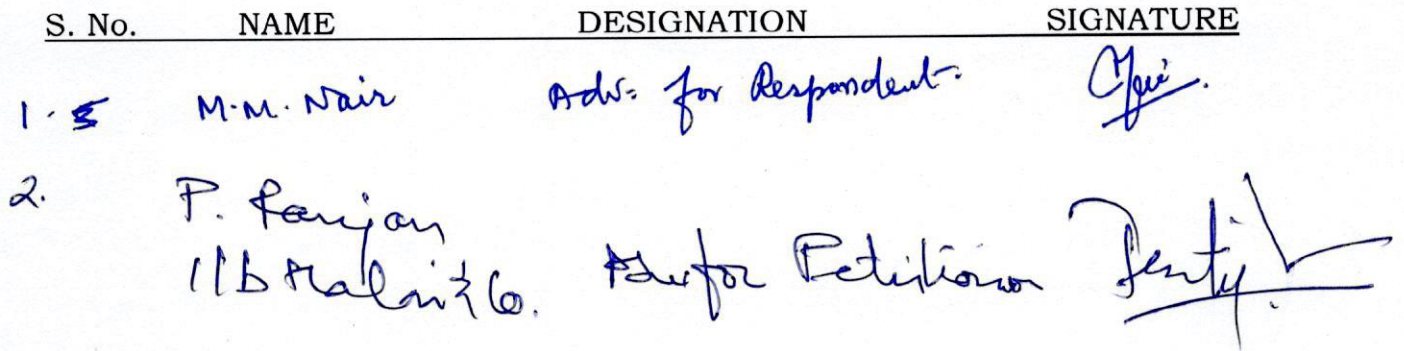 S. No. NAME DESIGNATION SIGNATURE
1. M.M. Nair Adv. for Respondent.
2. P. Ranjan
I/b & Co. Adv for Petitioner